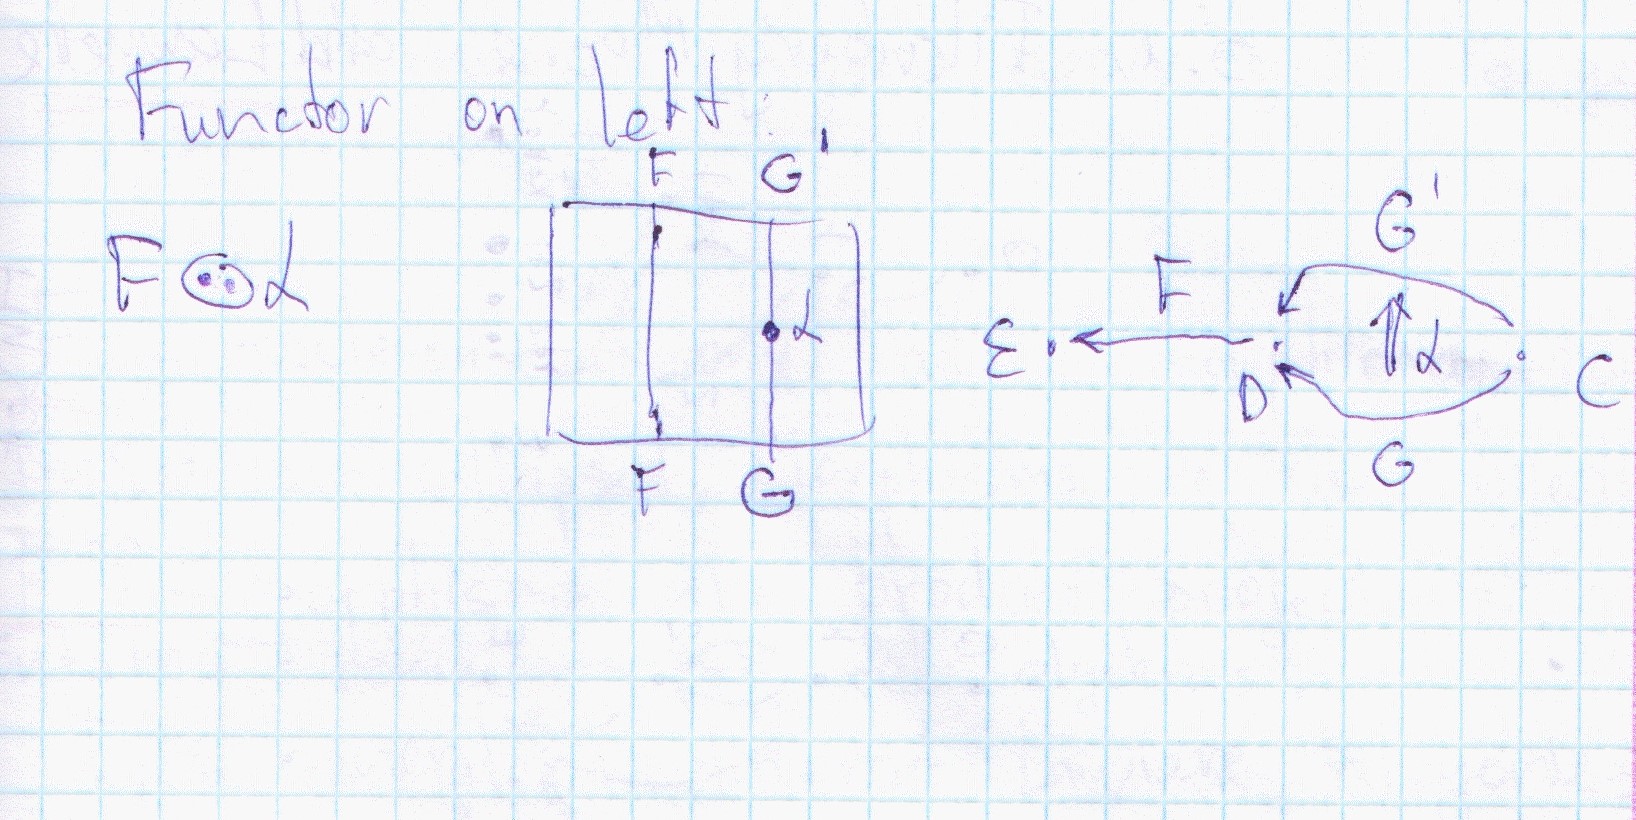 Functor on left:
F ⊙ α
F G'
α
F G
G'
F
ε D α C
G